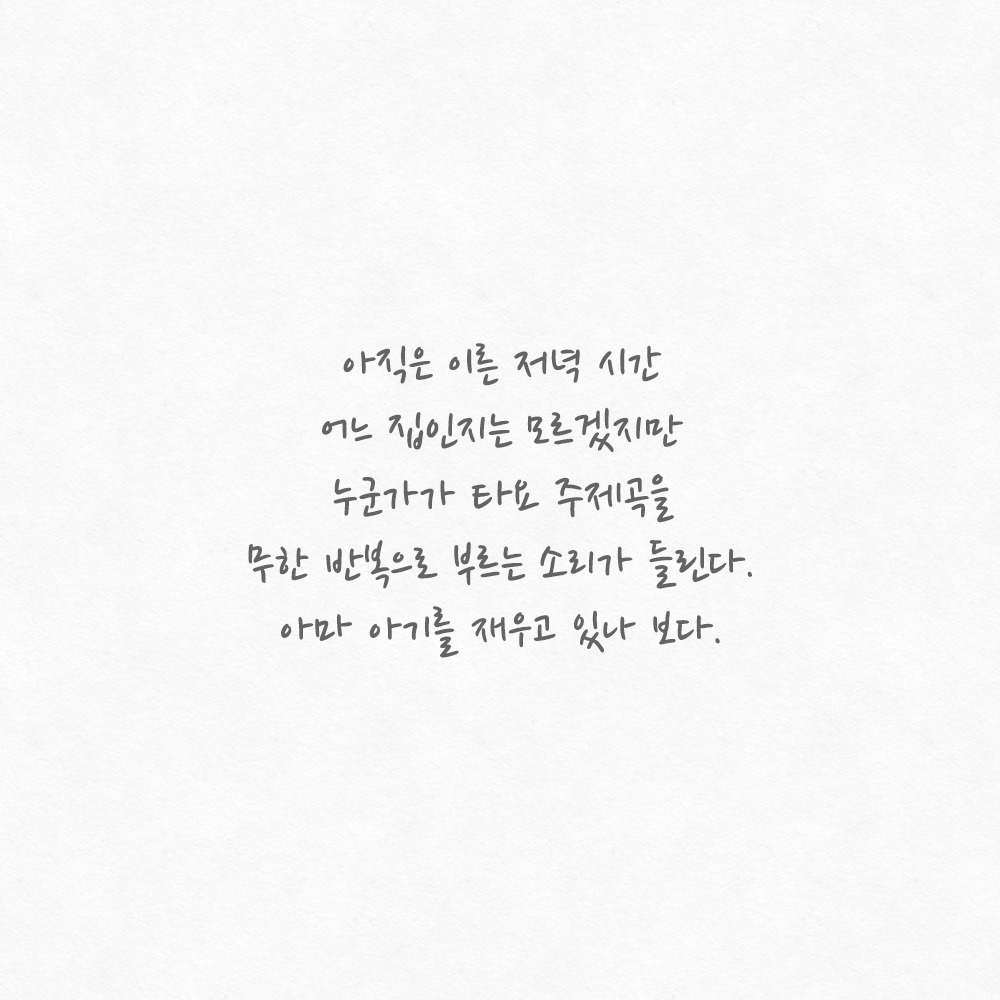 아직은 이른 저녁 시간
어느 집인지는 모르겠지만
누군가가 타요 주제곡을
무한 반복으로 부르는 소리가 들린다.
아마 아기를 재우고 있나 보다.